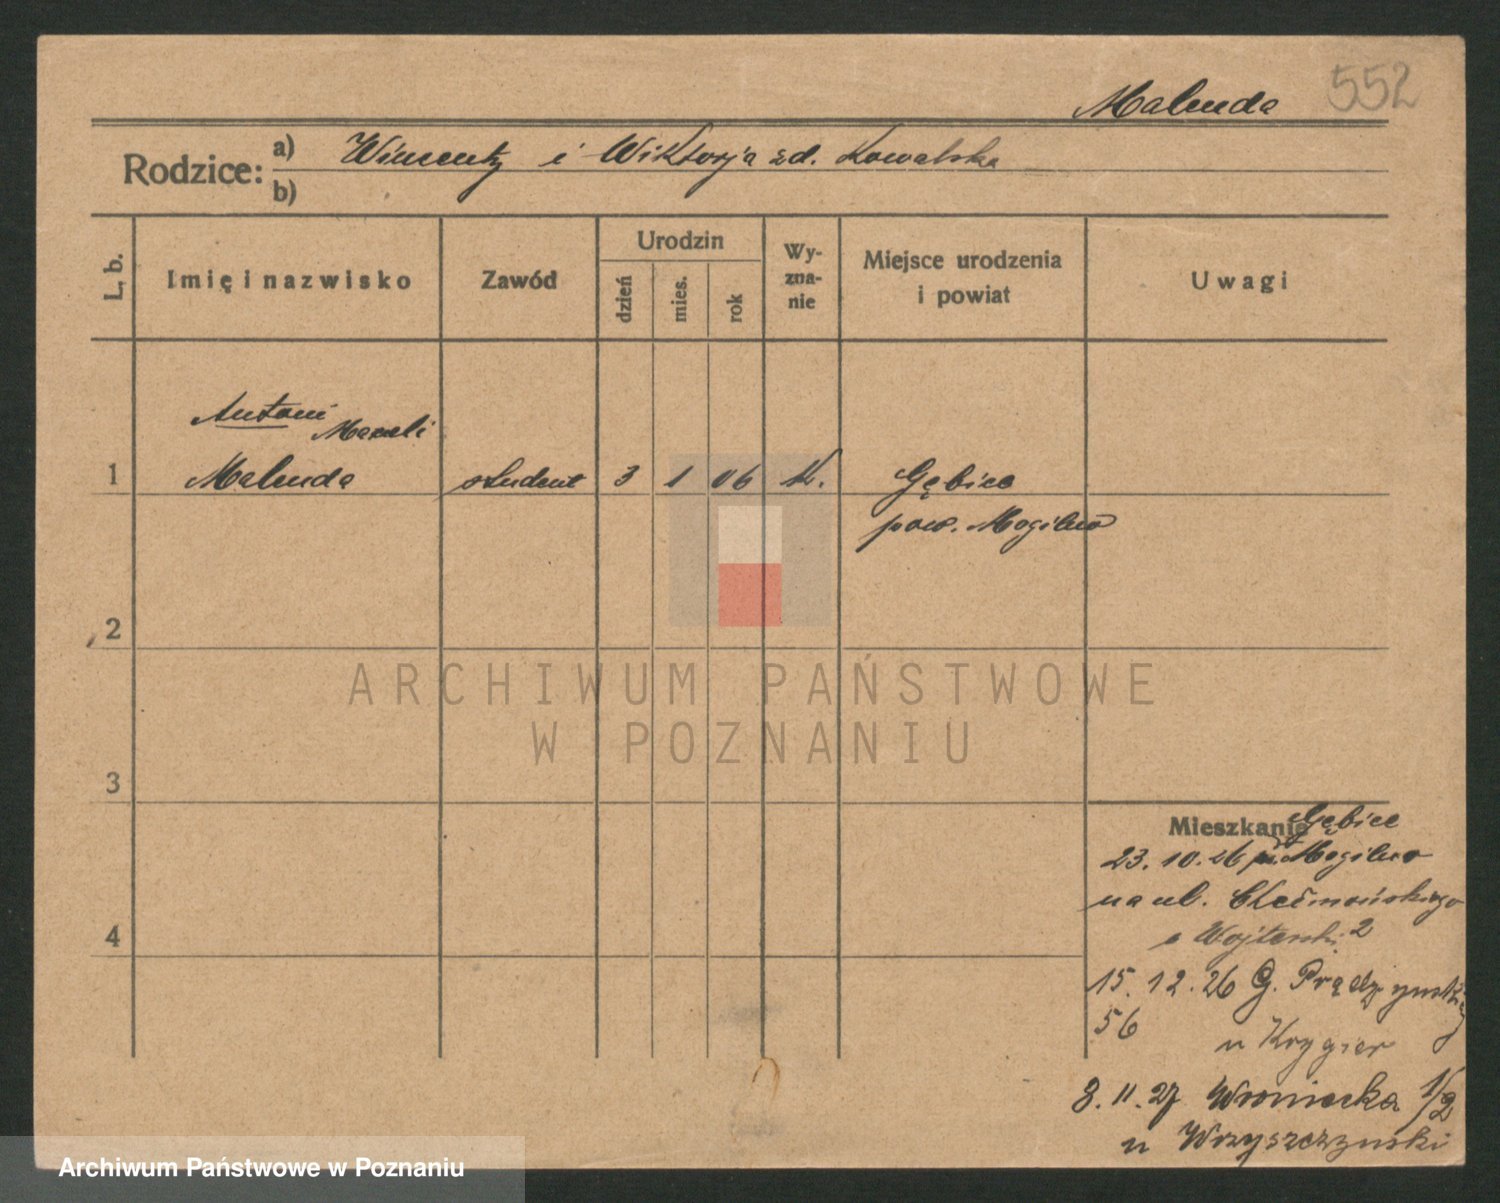 552
Malenda
Rodzice: a) Wincenty i Wiktorja zd. Kowalska
b)
L. b.
Imię i nazwisko
Zawód
Urodzin
dzień
mies.
rok
Wy-
zna-
nie
Miejsce urodzenia
i powiat
Uwagi
Antoni
Marceli
1 Malenda student 3 1 06 K. Gębice
pow. Mogilno
2
3
4
Mieszkanie Gębice
23. 10. 26 Mogilno
na ul.
u Wojterski 2
15. 12. 26 G. Prądzyńskiego
56
u Krygier
8. 11. 27 Wroniecka 1/2
u Wrzyszczyński
ARCHIWUM PAŃSTWOWE
W POZNANIU
Archiwum Państwowe w Poznaniu